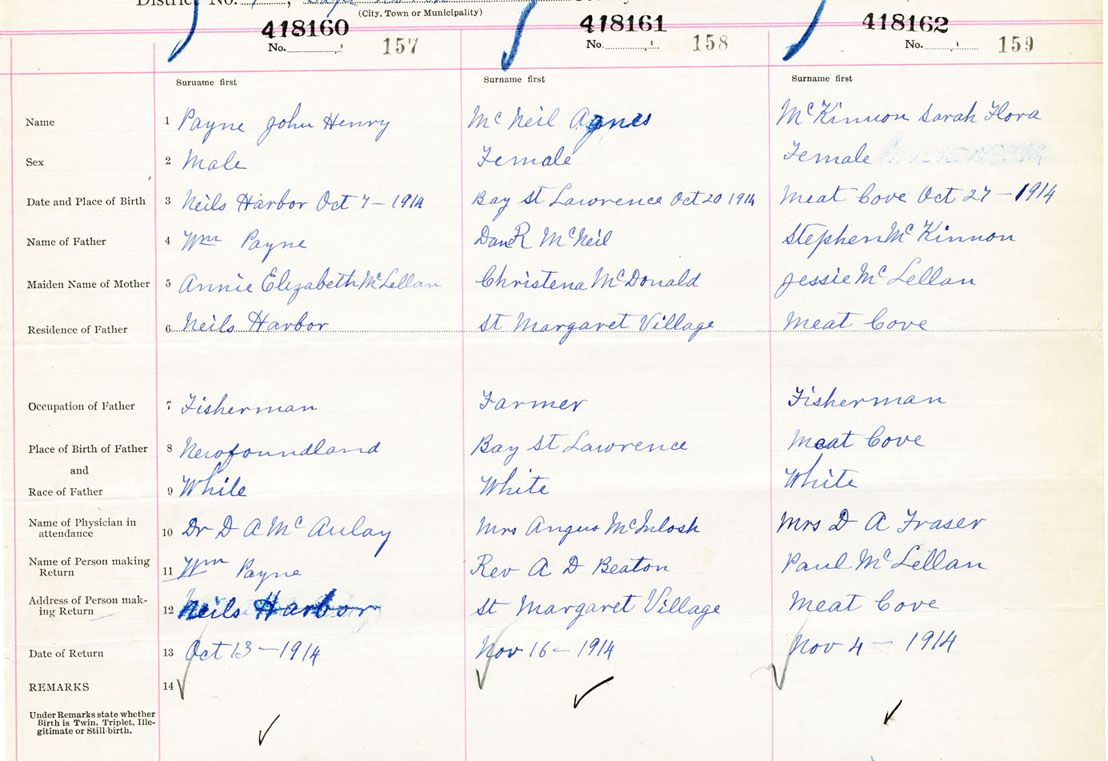 District No.
(City, Town or Municipality)
418160 418161 418162
No. 157 No. 158 No. 159
Surname first Surname first Surname first
Name 1 Payne John Henry McNeil Agnes McKinnon Sarah Flora
Sex 2 Male Female Female
Date and Place of Birth 3 Neils Harbor Oct 7 - 1914 Bay St Lawrence Oct 20 1914 Meat Cove Oct 27 - 1914
Name of Father 4 Wm Payne Dan R McNeil Stephen McKinnon
Maiden Name of Mother 5 Annie Elizabeth McLellan Christena McDonald Jessie McLellan
Residence of Father 6 Neils Harbor St Margaret Village Meat Cove
Occupation of Father 7 Fisherman Farmer Fisherman
Place of Birth of Father 8 Newfoundland Bay St Lawrence Meat Cove
and
Race of Father 9 White White White
Name of Physician in
attendance 10 Dr D A McAulay Mrs Angus McIntosh Mrs D A Fraser
Name of Person making
Return 11 Wm Payne Rev A D Beaton Paul McLellan
Address of Person mak-
ing Return 12 Neils Harbor St Margaret Village Meat Cove
Date of Return 13 Oct 13 - 1914 Nov 16 - 1914 Nov 4 - 1914
REMARKS 14
Under Remarks state whether
Birth is Twin, Triplet, Ille-
gitimate or Still-birth.